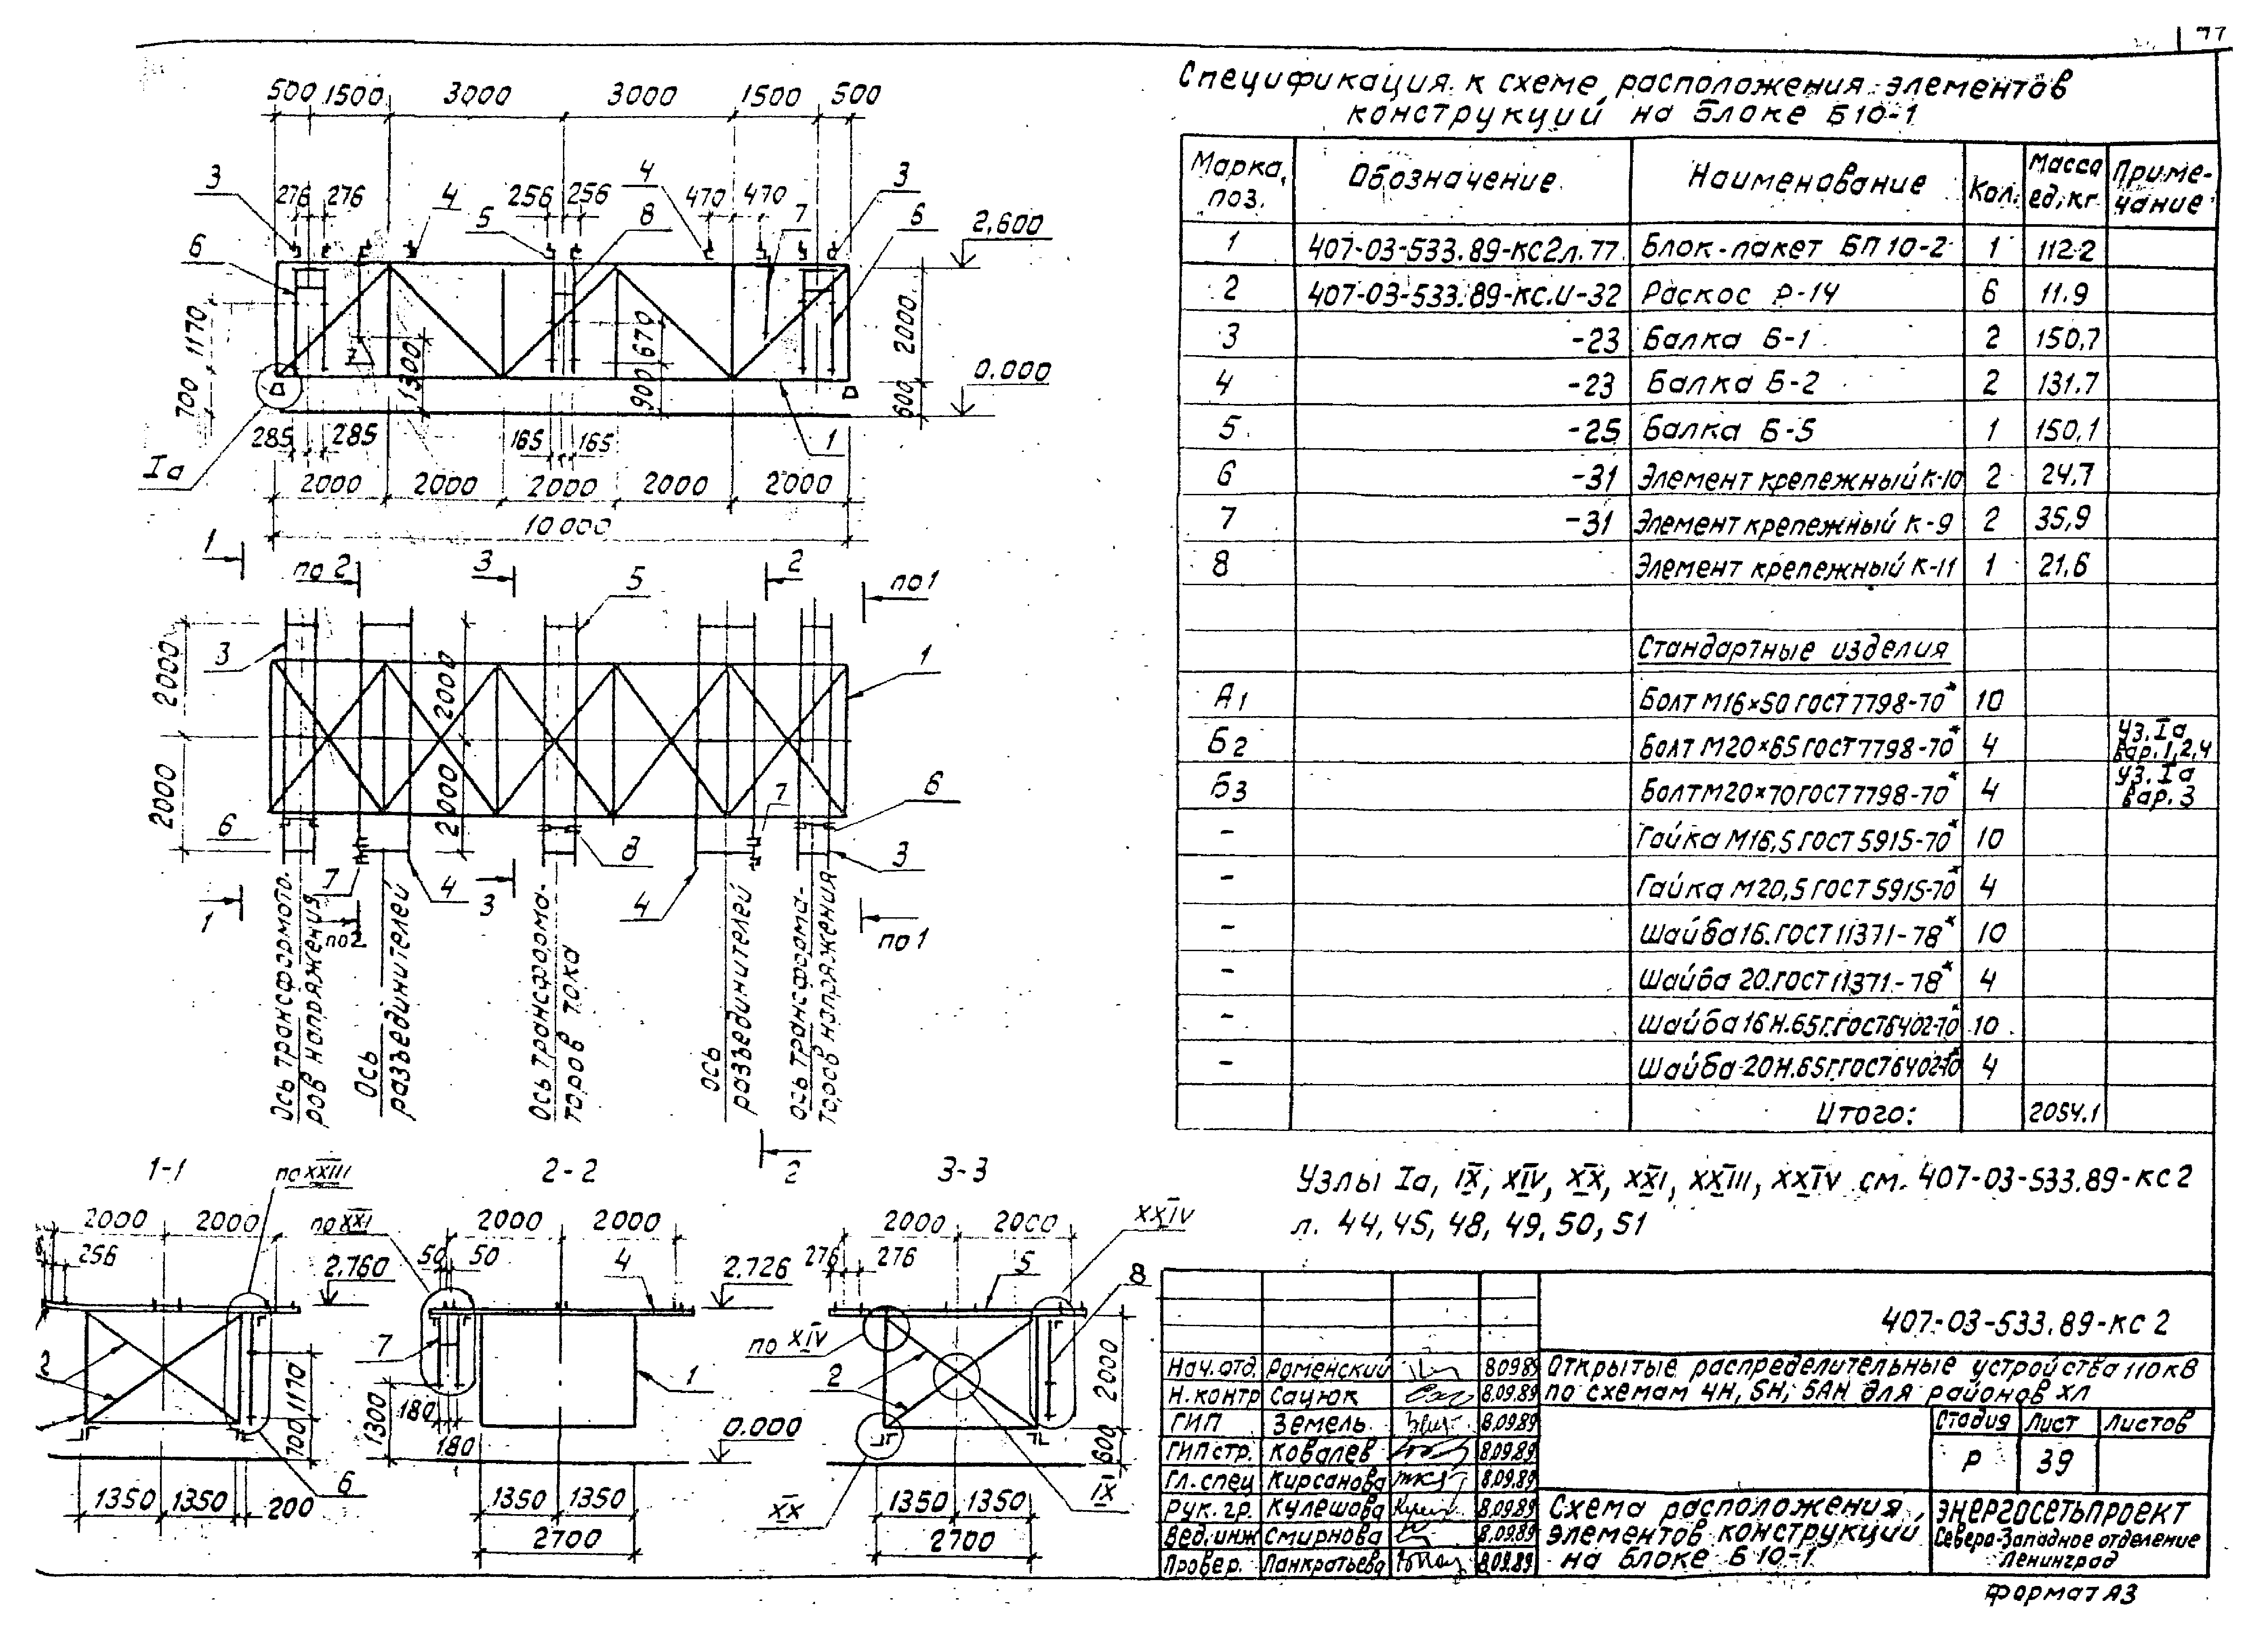 77
Спецификация к схеме расположения элементов
конструкций на блоке Б10-1
Марка, поз. Обозначение Наименование Кол. Масса ед, кг Примечание
1 407-03-533.89-КС2л.77 Блок-пакет БП10-2 1 1122
2 407-03-533.89-КС.И-32 Раскос Р-14 6 11.9
3 -23 Балка Б-1 2 150,7
4 -23 Балка Б-2 2 131.7
5 -25 Балка Б-5 1 150,1
6 -31 Элемент крепежный К-10 2 24,7
7 -31 Элемент крепежный К-9 2 35,9
8 Элемент крепежный К-11 1 21,6
Стандартные изделия
А1 Болт М16×50 ГОСТ 7798-70* 10
Б2 Болт М20×65 ГОСТ 7798-70* 4 Уз. Iа вар. 1,2,4
Б3 Болт М20×70 ГОСТ 7798-70* 4 Уз. Iа вар. 3
- Гайка М16,5 ГОСТ 5915-70* 10
- Гайка М20,5 ГОСТ 5915-70* 4
- Шайба 16.ГОСТ 11371-78* 10
- Шайба 20.ГОСТ 11371-78* 4
- Шайба 16Н.65Г.ГОСТ 6402-70* 10
- Шайба 20Н.65Г.ГОСТ 6402-70* 4
Итого: 2054.1
Узлы Iа, IX, XIV, XX, XXI, XXIII, XXIV см. 407-03-533.89-КС2
л. 44, 45, 48, 49, 50, 51
407-03-533.89-КС2
Открытые распределительные устройства 110кВ
по схемам 4Н, 5Н, 5АН для районов ХЛ
Стадия Лист Листов
Р 39
Схема расположения
элементов конструкций
на блоке Б10-1
ЭНЕРГОСЕТЬПРОЕКТ
Северо-Западное отделение
Ленинград
Формат А3
Нач.отд. Роменский 8.09.89
Н.контр Сацюк 8.09.89
ГИП Земель 8.09.89
ГИПстр. Ковалев 8.09.89
Гл.спец Кирсанова 8.09.89
Рук.гр. Кулешова 8.09.89
Вед.инж Смирнова 8.09.89
Провер. Панкратьева 8.09.89
500 1500 3000 3000 1500 500
3 276 276 4 256 256 4 470 470 3
5 8 7 6
6 2,600
700 1170 7 1300 900 670 600 2000
0.000
285 285 165 165 1
Iа
2000 2000 2000 2000 2000
10 000
1 по 2 3 5 2 по 1
3 1
2000 2000 2000 2000
6 7 4 3 8 4 7 6 3
1 по 2 по 1
Ось трансформато-
ров напряжения
Ось
разъединителей
Ось трансформа-
торов тока
Ось
разъединителей
Ось трансформа-
торов напряжения
2
1-1 по XXIII
2000 2000
256 2.760
2
700 1170
1350 1350 200 6
2-2
по XXI 2000 2000
50 50 4 2.726
7 1
1300 180 180 0.000
1350 1350
2700
3-3
2000 2000 XXIV
276 276 5 8
по XIV
2
2000 600
XX IX
1350 1350
2700